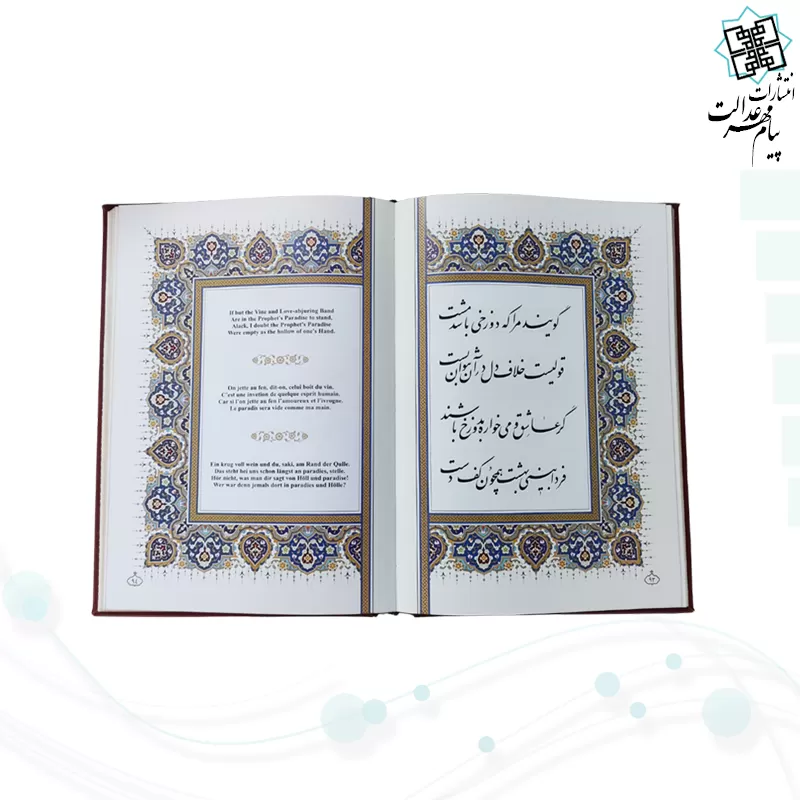 انتشارات
پیام مهر عدالت
گویند مرا که دوزخی باشد مست
قولیست خلاف دل در آن نتوان بست
گر عاشق و می خواره بدوزخ باشند
فردا بینی بهشت همچون کف دست
۹۳
If but the Vine and Love-abjuring Band
Are in the Prophet's Paradise to stand,
Alack, I doubt the Prophet's Paradise
Were empty as the hollow of one's Hand.
On jette au feu, dit-on, celui boit du vin.
C'est une invetion de quelque esprit humain.
Car si l'on jette au feu l'amoureux et l'ivrogne.
Le paradis sera vide comme ma main.
Ein krug voll wein und du, saki, am Rand der Qulle.
Das steht bei uns schon längst an paradies, stelle.
Hör nicht, was man dir sagt von Höll und paradise!
Wer war denn jemals dort in paradies und Hölle?
۹۴